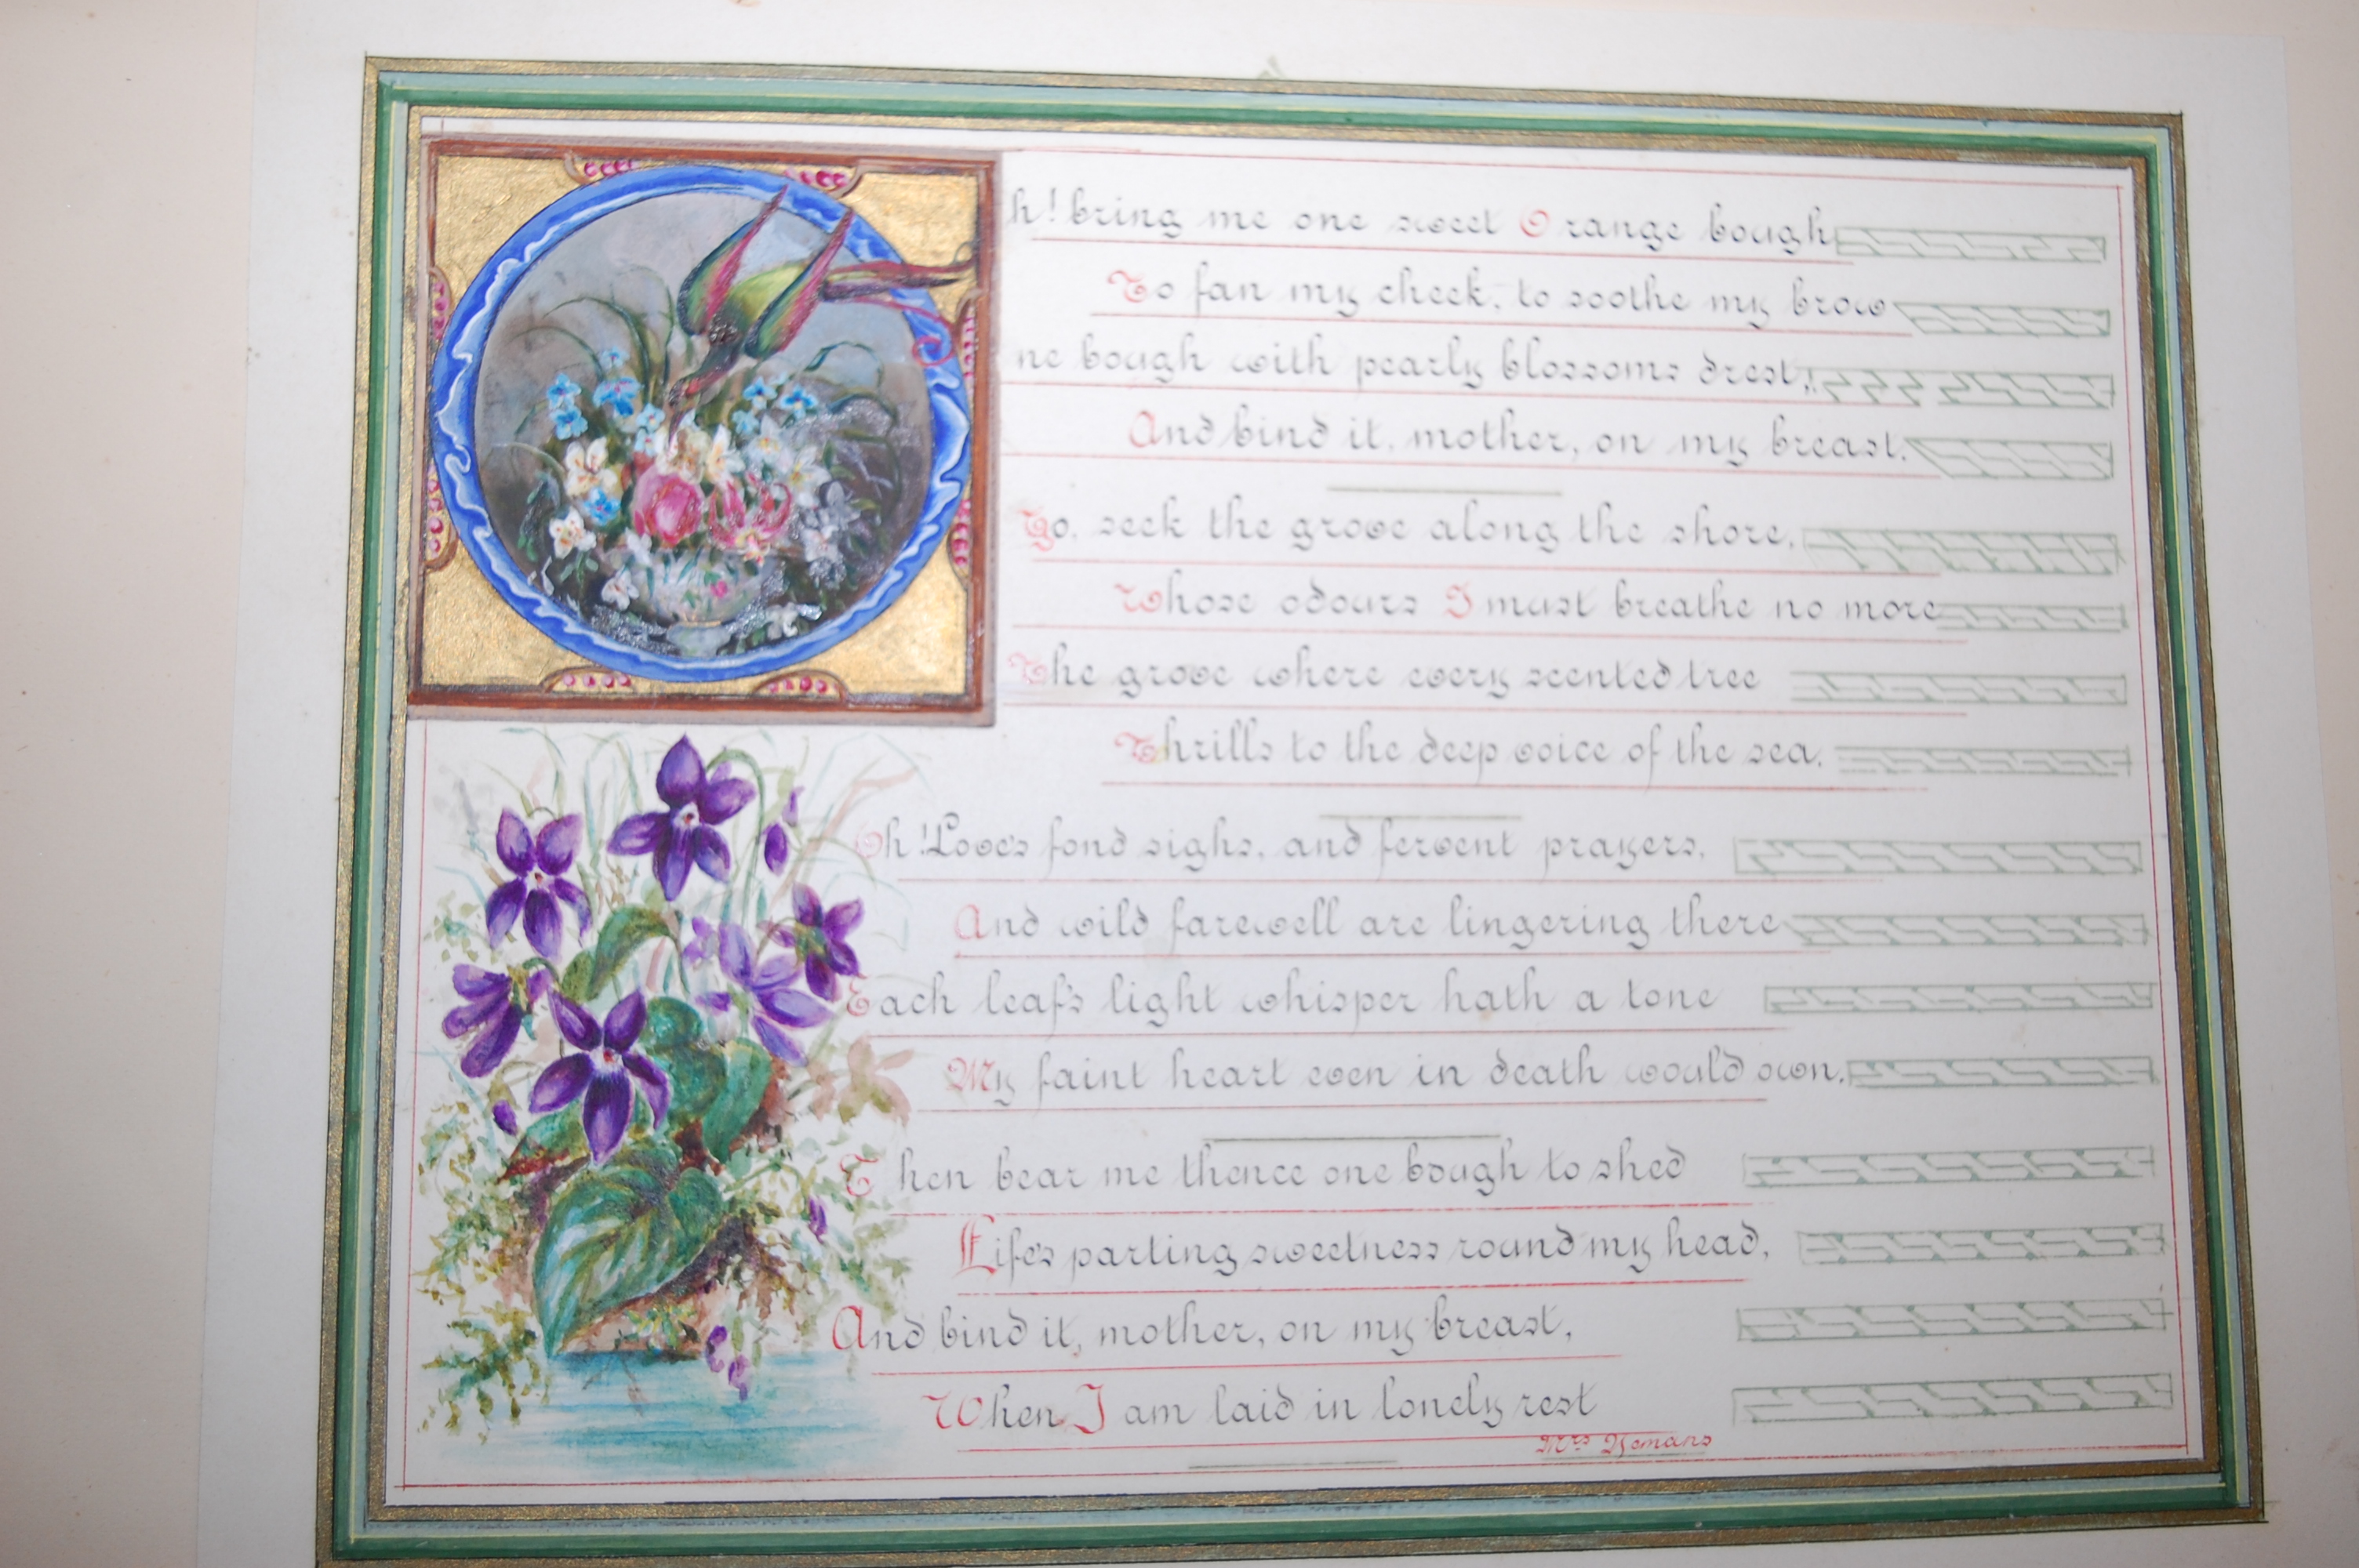 h! bring me one sweet Orange bough
To fan my cheek, to soothe my brow
ne bough with pearly blossoms drest,
And bind it, mother, on my breast.
Go, seek the grove along the shore,
Whose odours I must breathe no more
The grove where every scented tree
Thrills to the deep voice of the sea.
Oh! Love's fond sighs, and fervent prayers,
And wild farewell are lingering there
Each leaf's light whisper hath a tone
My faint heart even in death would own.
Then bear me thence one bough to shed
Life's parting sweetness round my head,
And bind it, mother, on my breast,
When I am laid in lonely rest
Mrs Hemans